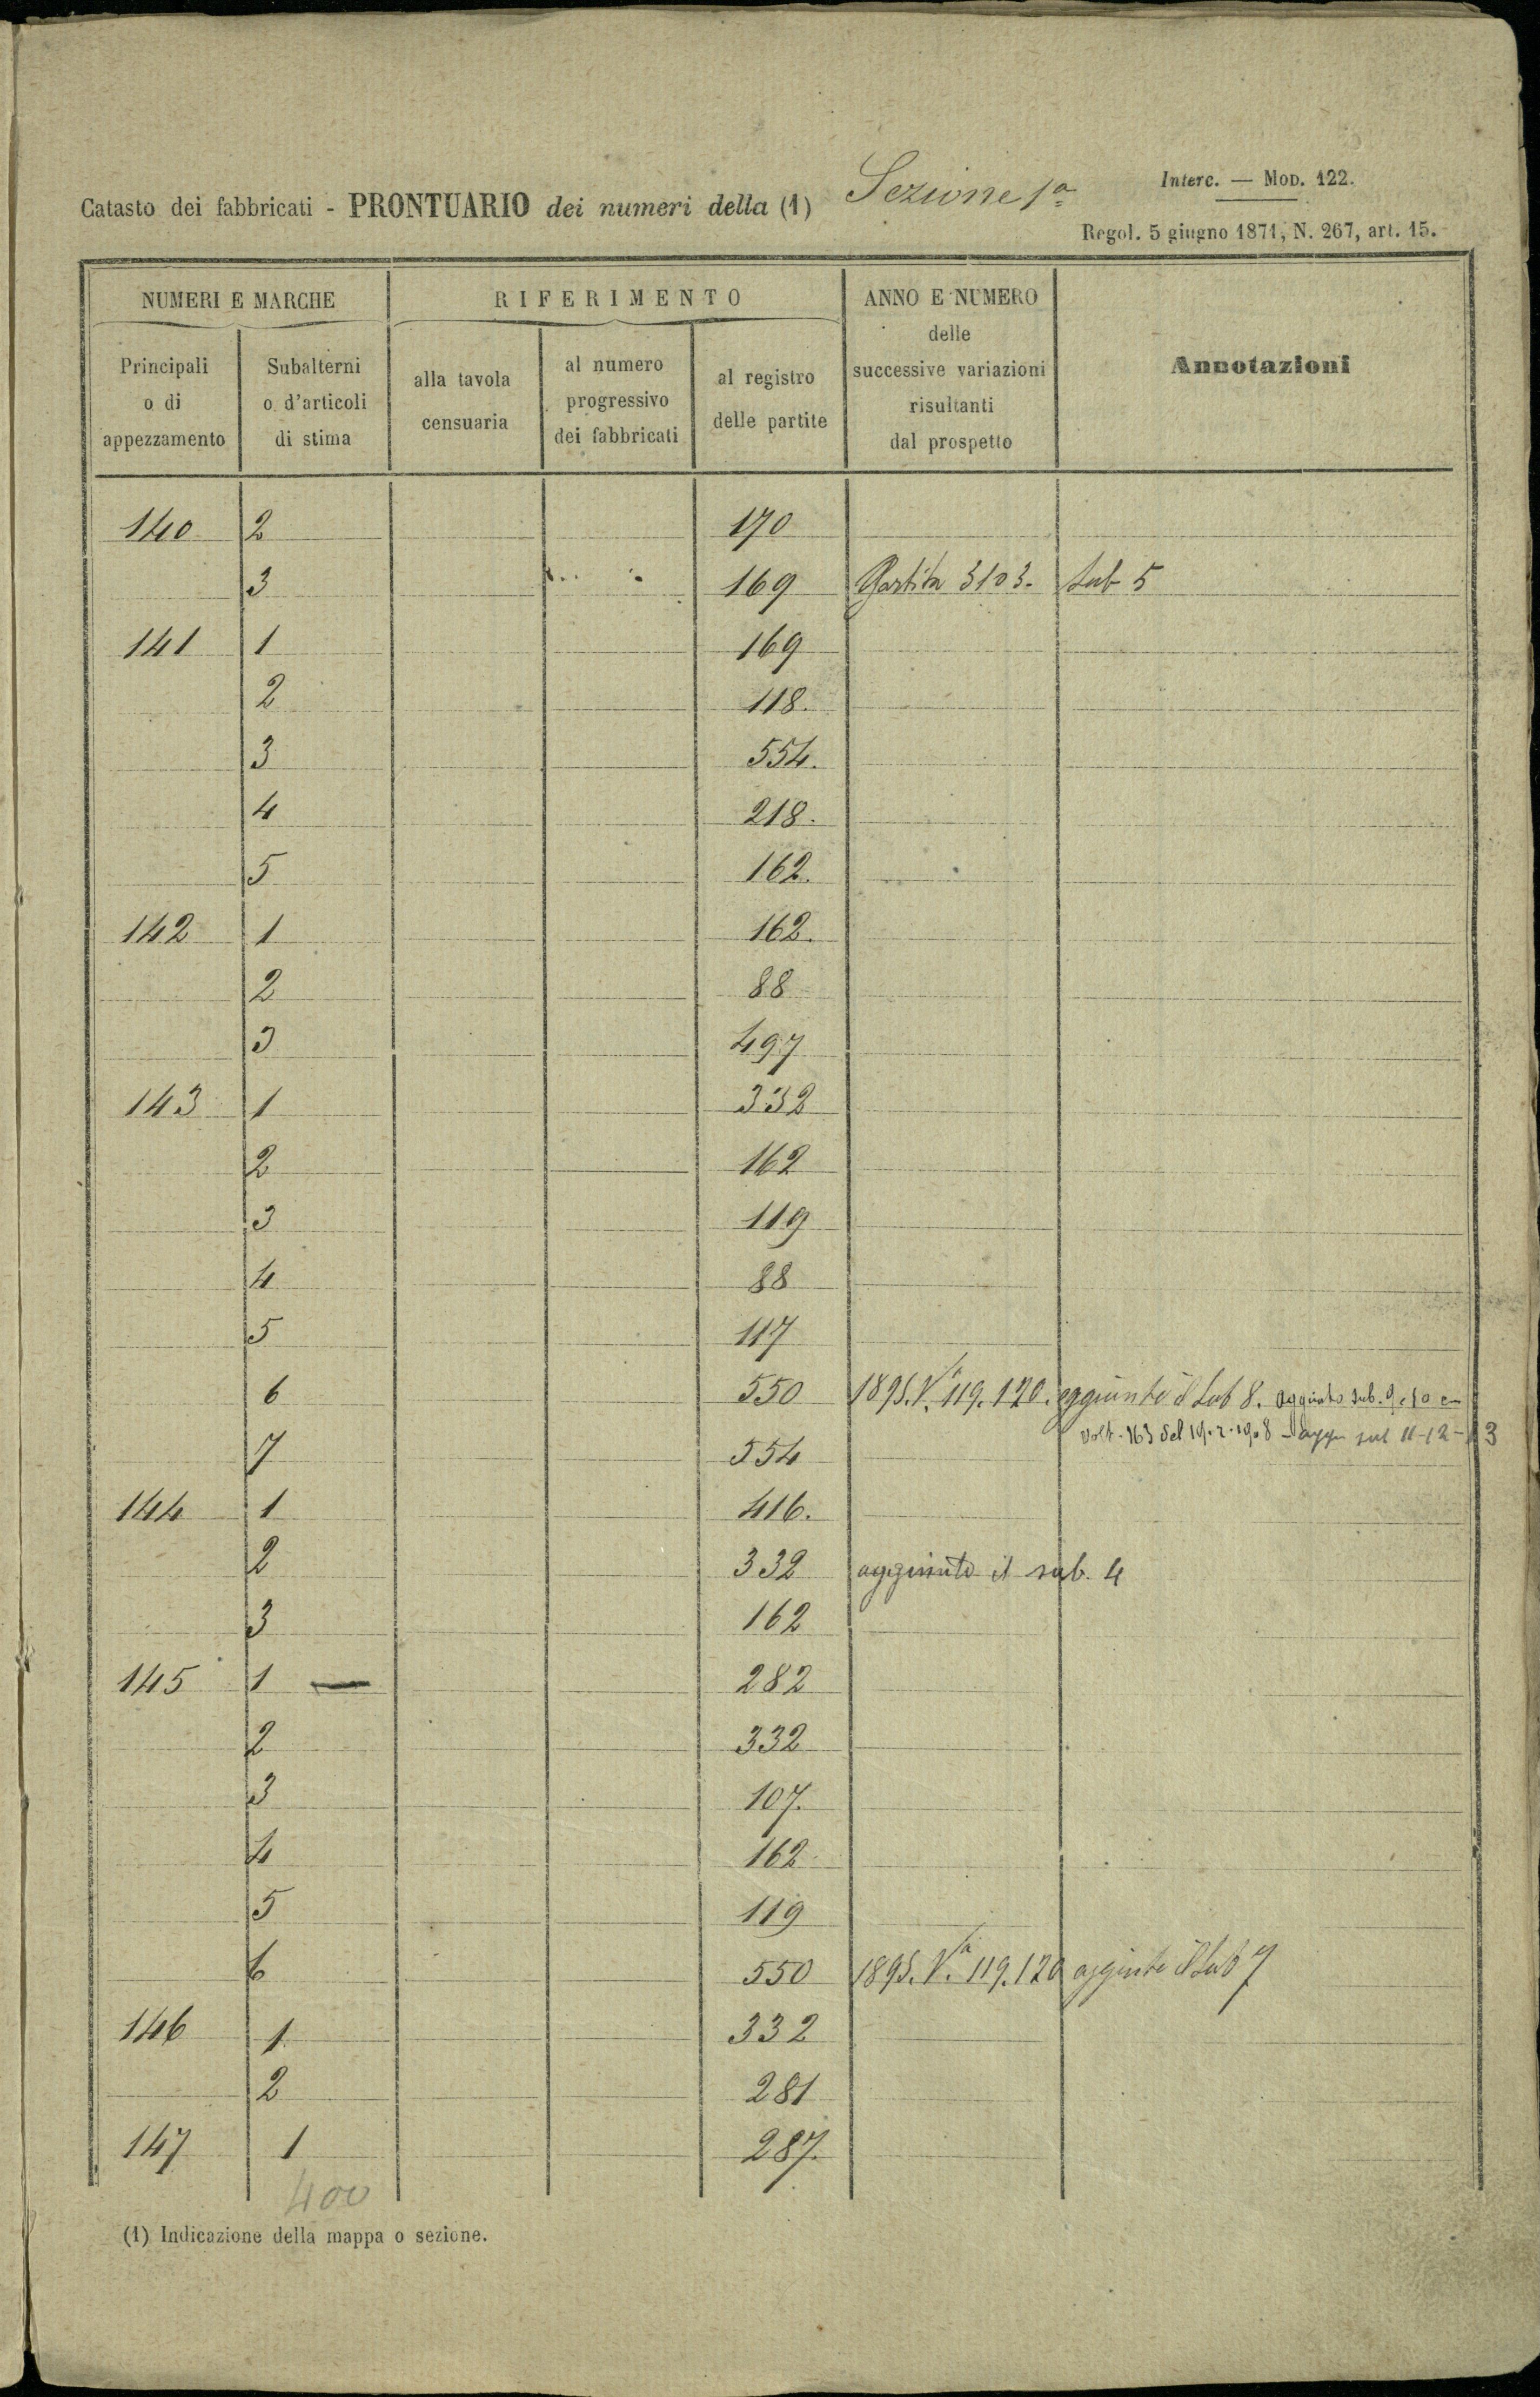 Interc. — Mod. 122.
Catasto dei fabbricati - PRONTUARIO dei numeri della (1) Sezione 1a
Regol. 5 giugno 1871, N. 267, art. 15.
NUMERI E MARCHE RIFERIMENTO ANNO E NUMERO delle successive variazioni risultanti dal prospetto Annotazioni
Principali o di appezzamento Subalterni o d'articoli di stima alla tavola censuaria al numero progressivo dei fabbricati al registro delle partite
140 2 170
3 169 Partita 3103. Sub 5
141 1 169
2 118.
3 554.
4 218.
5 162.
142 1 162.
2 88
3 497
143 1 332
2 162
3 119
4 88
5 117
6 550 1895. Va. 119. 120. aggiunto il Sub 8. aggiunto sub. 9. 10
7 554 volt. 163 del 19.2.1908 - sub 11-12-13
144 1 416.
2 332 aggiunto il sub. 4
3 162
145 1 — 282
2 332
3 107.
4 162
5 119
6 550 1895. Va. 119. 120 aggiunto il Sub 7
146 1 332
2 281
147 1 287.
400
(1) Indicazione della mappa o sezione.